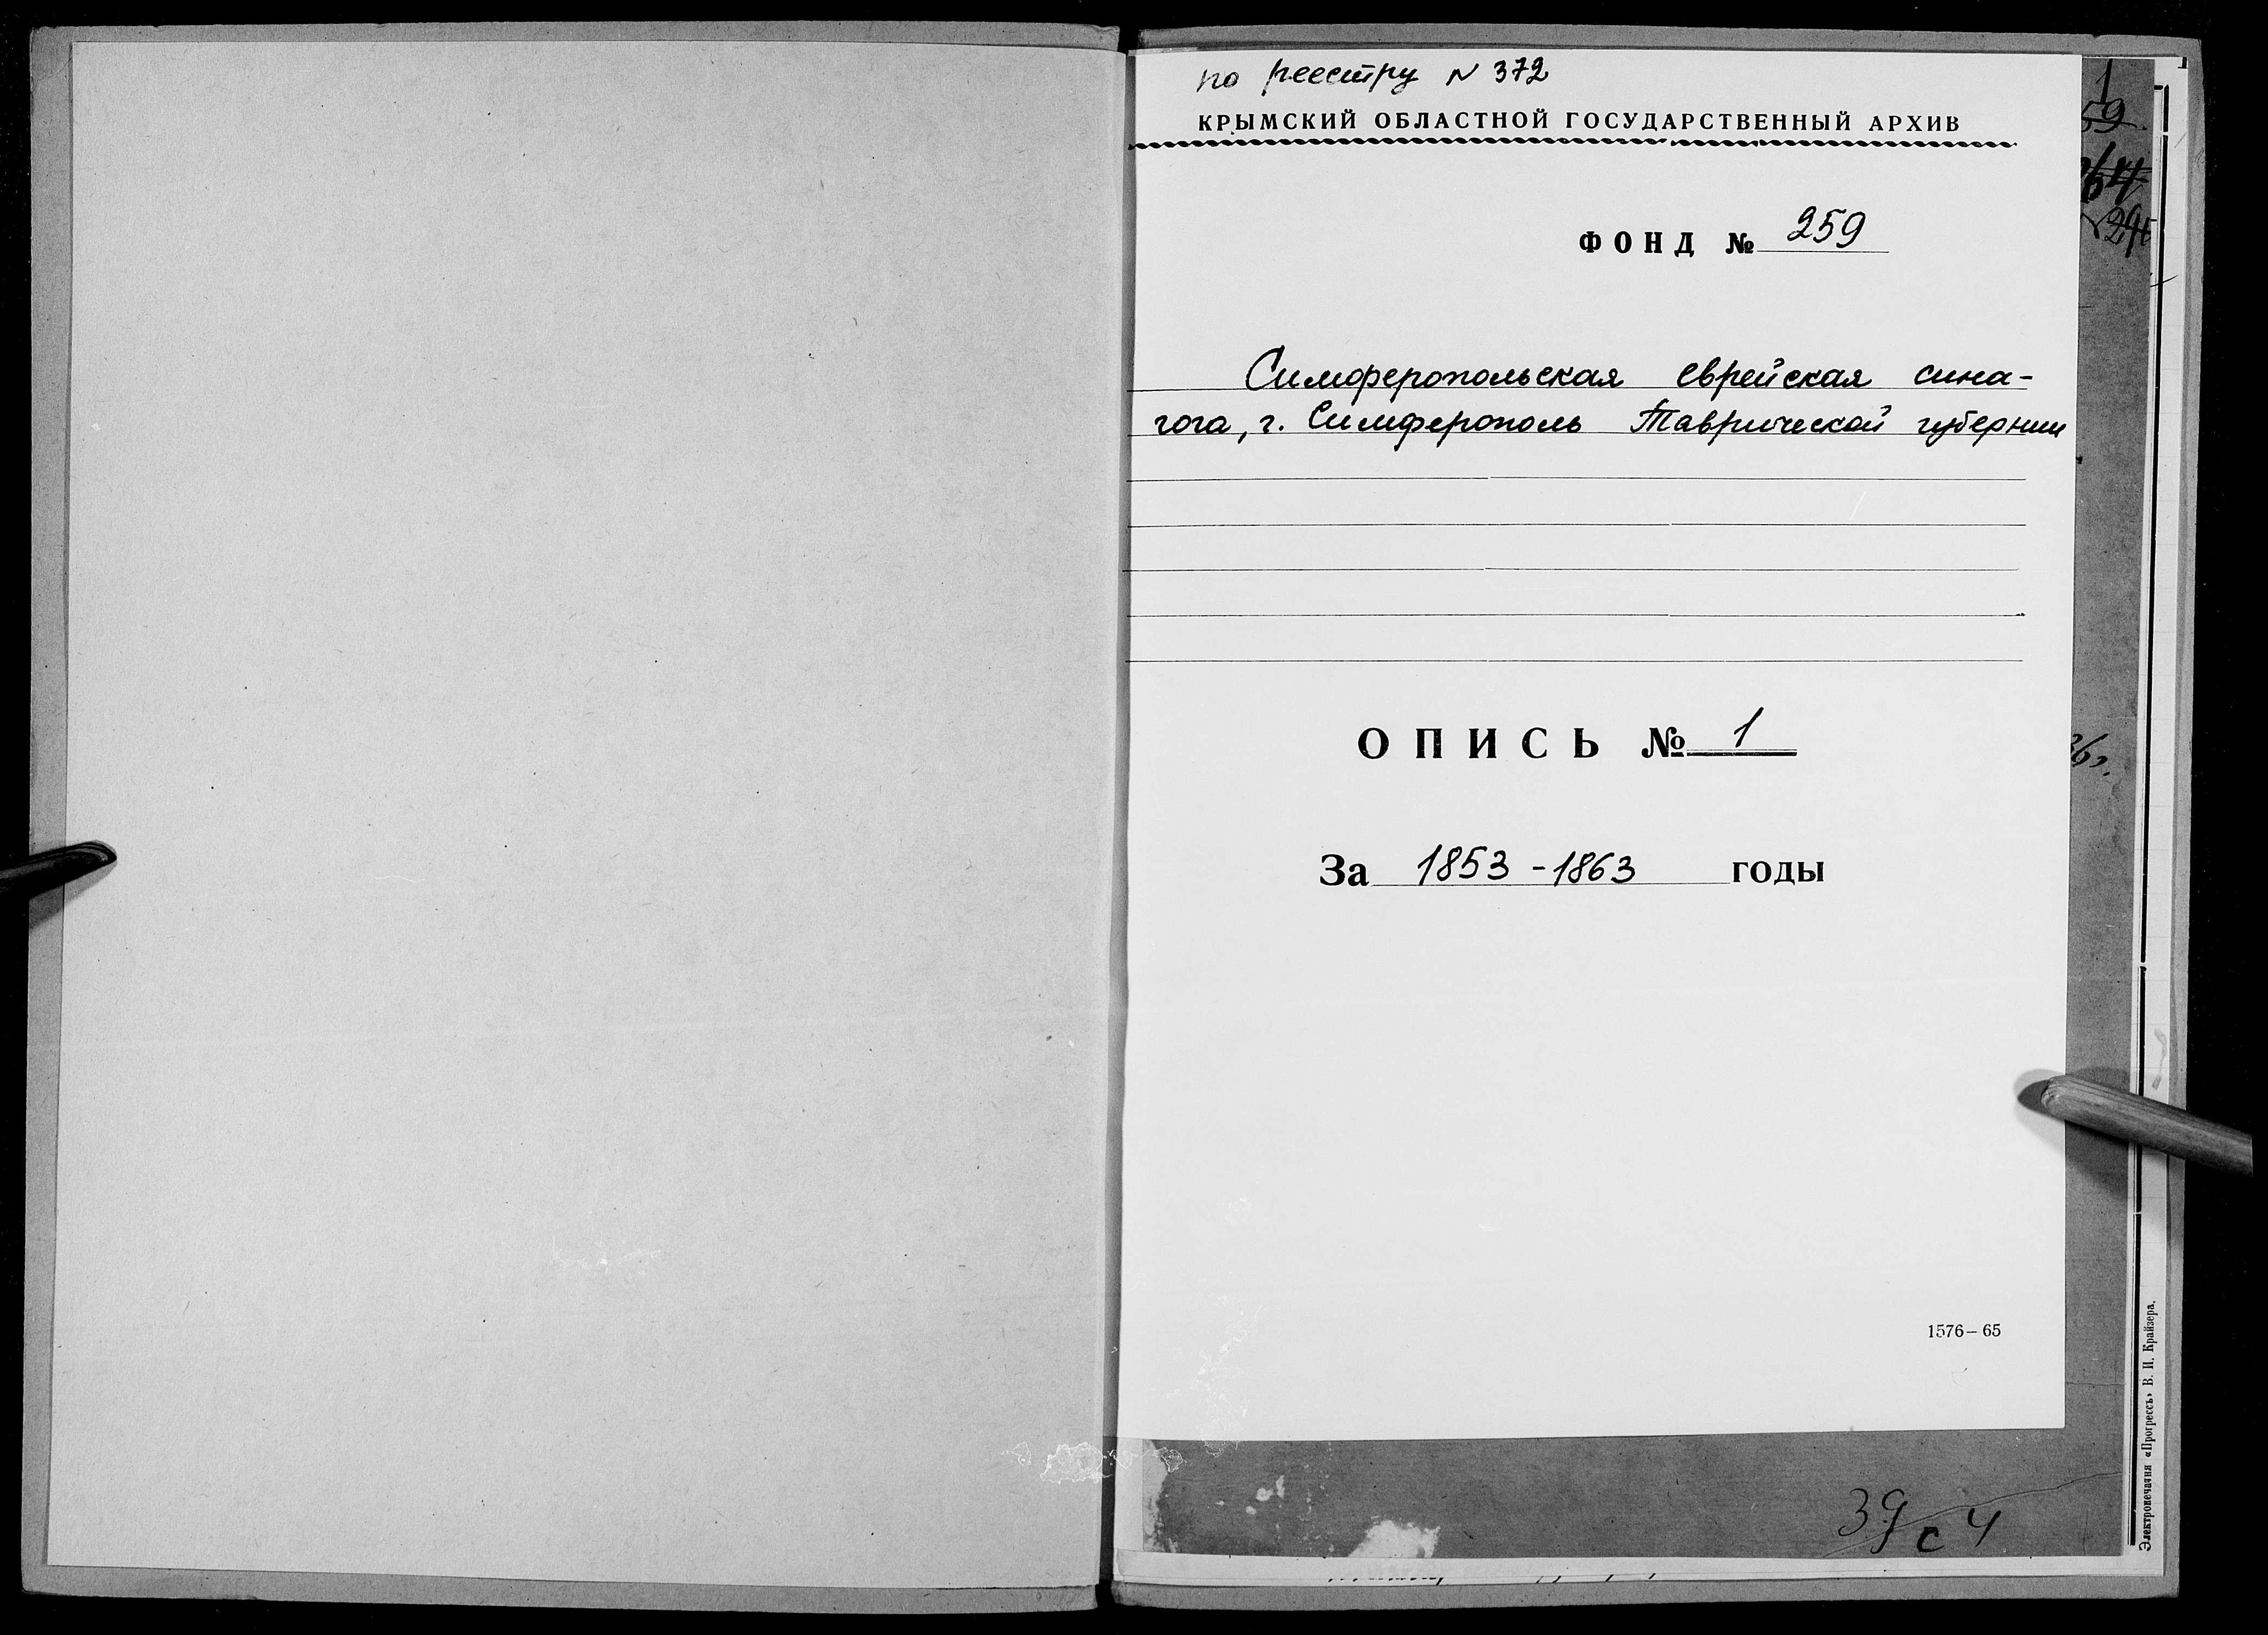 по реестру N 372
КРЫМСКИЙ ОБЛАСТНОЙ ГОСУДАРСТВЕННЫЙ АРХИВ
ФОНД № 259
Симферопольская еврейская сина-
гога, г. Симферополь Таврической губернии
ОПИСЬ № 1
За 1853-1863 годы
1576-65
1
59
24
36г.
39 с 4
Электропечатня «Прогрессъ» В. И. Крайзера.